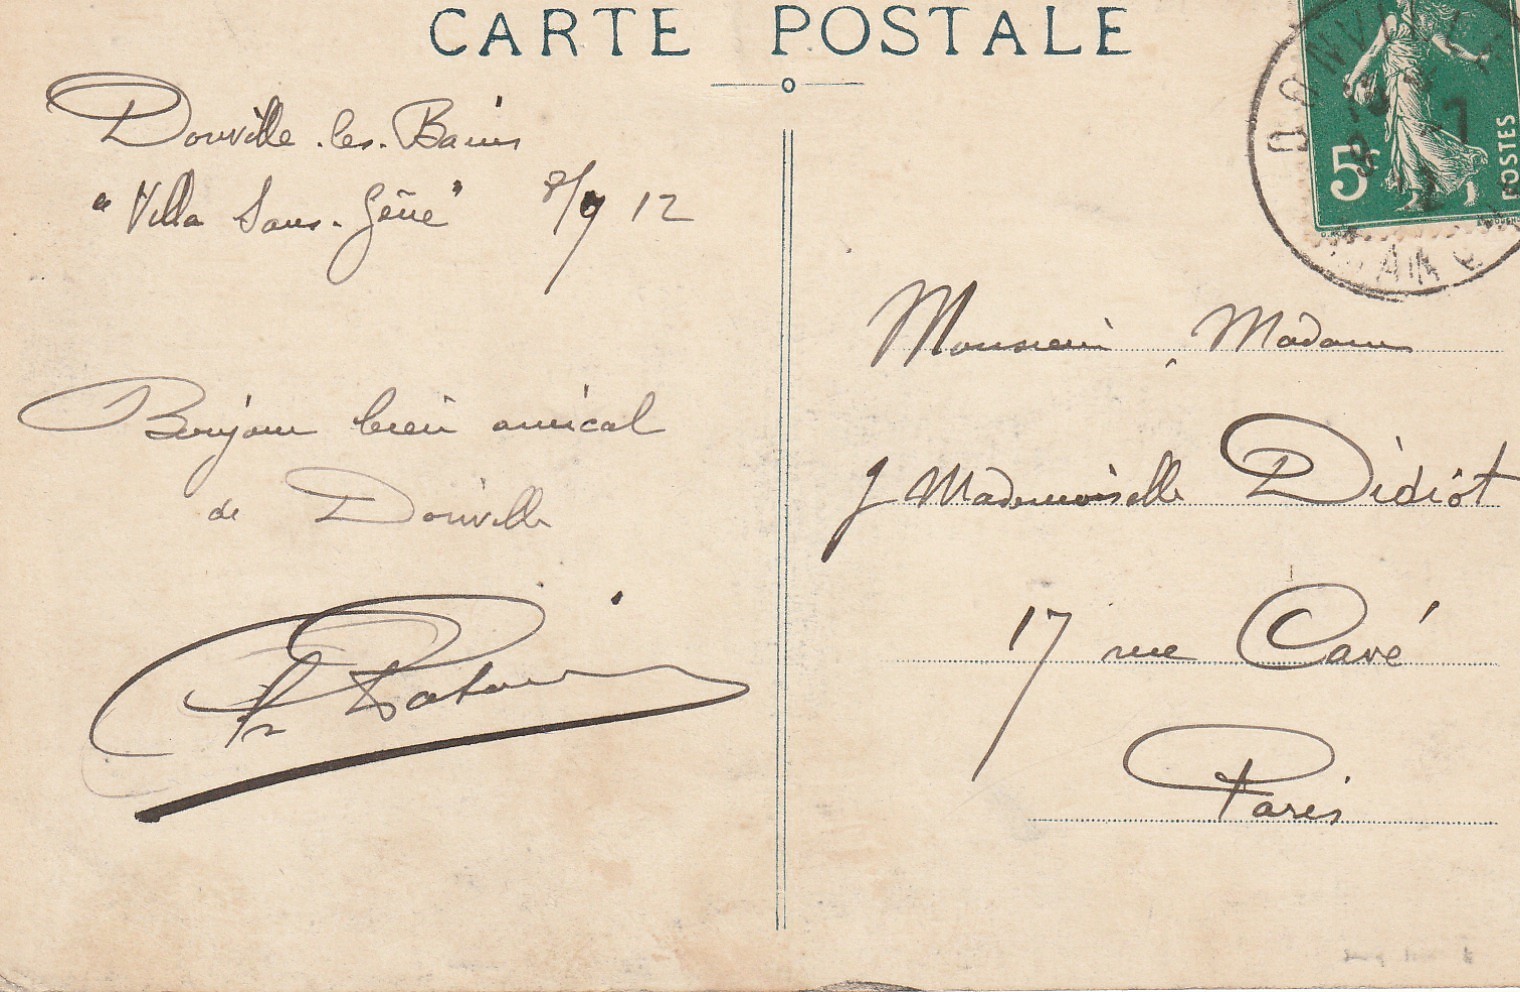 CARTE POSTALE
Donville-les-Bains
"Villa Sans-Gêne" 8/9 12
Bonjour bien amical
de Donville
DONVILLE
5c
POSTES
Monsieur, Madame
& Mademoiselle Didiot
17 rue Cavé
Paris